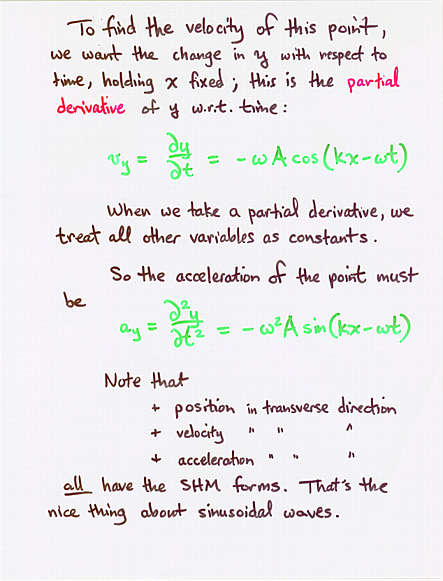 To find the velocity of this point,
we want the change in y with respect to
time, holding x fixed; this is the partial
derivative of y w.r.t. time:
v_y = ∂y/∂t = -ωA cos(kx-ωt)
When we take a partial derivative, we
treat all other variables as constants.
So the acceleration of the point must
be
a_y = ∂²y/∂t² = -ω²A sin(kx-ωt)
Note that
+ position in transverse direction
+ velocity " " "
+ acceleration " " "
all have the SHM forms. That's the
nice thing about sinusoidal waves.